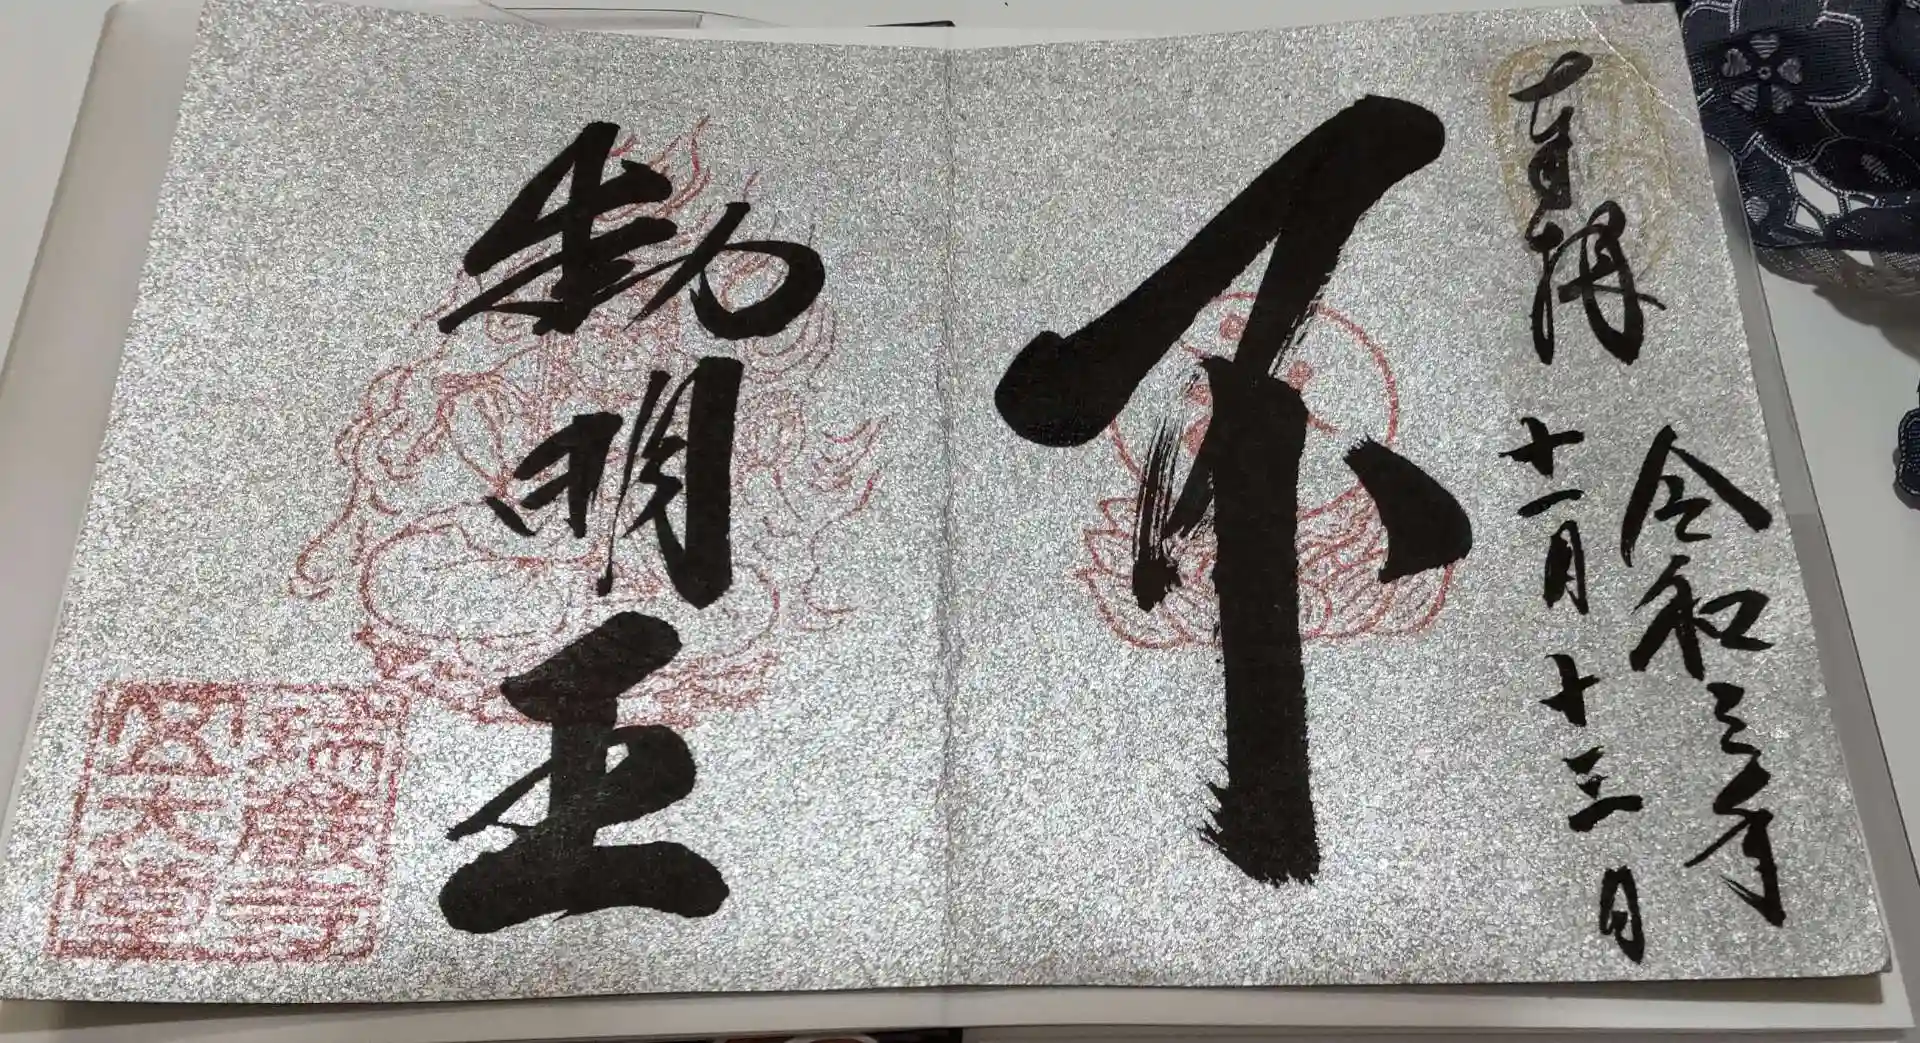 奉拝
令和三年
十一月十三日
不
動明王
瑞巌寺
五大堂